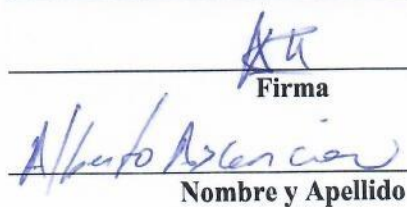 Firma
Alberto Ascencion
Nombre y Apellido